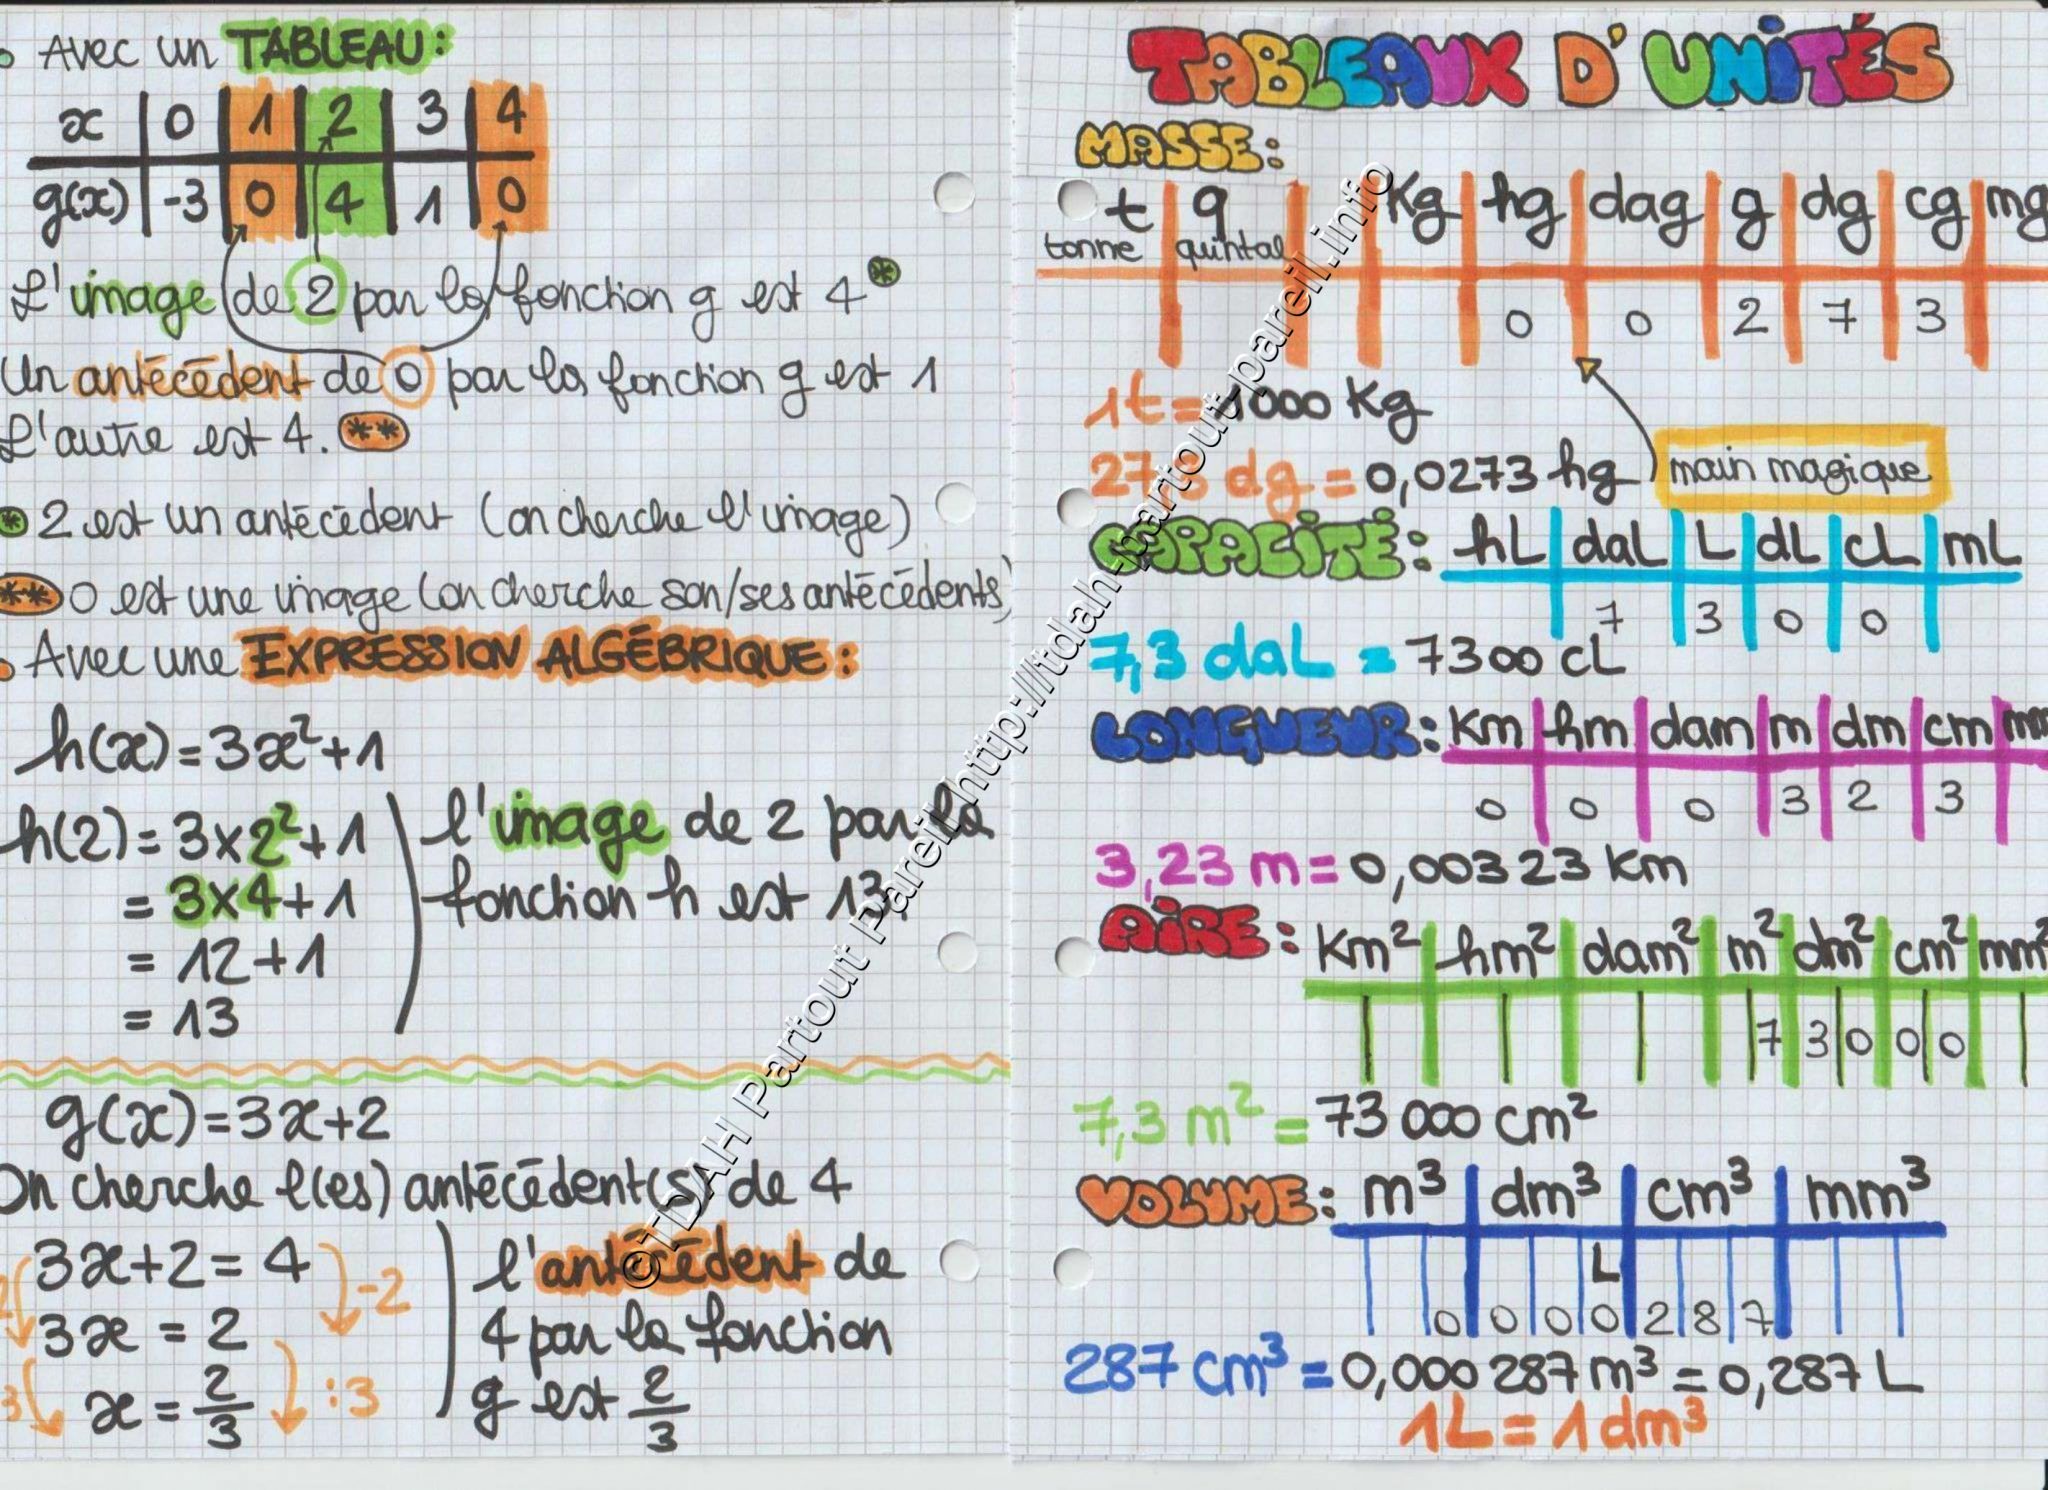 Avec un TABLEAU:
x 0 1 2 3 4
g(x) -3 0 4 1 0
L'image de 2 par la fonction g est 4 *
Un antécédent de 0 par la fonction g est 1
L'autre est 4. **
* 2 est un antécédent (on cherche l'image)
** 0 est une image (on cherche son/ses antécédents)
Avec une EXPRESSION ALGÉBRIQUE:
h(x)=3x²+1
h(2)=3×2²+1
=3×4+1
=12+1
=13
l'image de 2 par la
fonction h est 13.
g(x)=3x+2
On cherche l(es) antécédent(s) de 4
3x+2=4 -2
3x=2
x=2/3 :3
l'antécédent de
4 par la fonction
g est 2/3
TABLEAUX D'UNITÉS
MASSE:
t q Kg hg dag g dg cg mg
tonne quintal
0 0 2 7 3
1t=1000 Kg
273 dg=0,0273 hg main magique
CAPACITÉ: hL daL L dL cL mL
7 3 0 0
7,3 daL=7300 cL
LONGUEUR: Km hm dam m dm cm mm
0 0 0 3 2 3
3,23 m=0,00323 Km
AIRE: Km² hm² dam² m² dm² cm² mm²
7 3 0 0 0
7,3 m²=73 000 cm²
VOLUME: m³ dm³ cm³ mm³
L
0 0 0 0 2 8 7
287 cm³=0,000 287 m³=0,287 L
1L=1dm³
©TDAH Partout Pareil http://tdah-partout-pareil.info